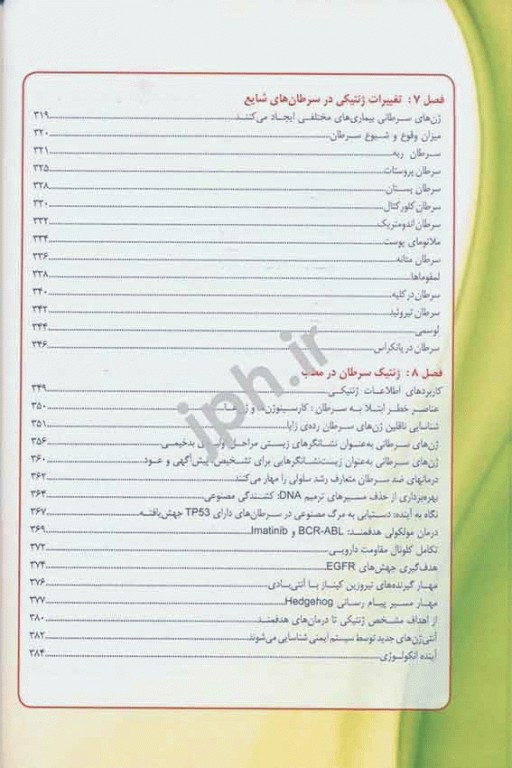 فصل ۷: تغییرات ژنتیکی در سرطان‌های شایع
ژن‌های سرطانی بیماری‌های مختلفی ایجاد می‌کنند ۳۱۹
میزان وقوع و شیوع سرطان ۳۲۰
سرطان ریه ۳۲۱
سرطان پروستات ۳۲۵
سرطان پستان ۳۲۸
سرطان کلورکتال ۳۳۰
سرطان اندومتریک ۳۳۲
ملانومای پوست ۳۳۴
سرطان مثانه ۳۳۶
لمفوماها ۳۳۸
سرطان در کلیه ۳۴۰
سرطان تیروئید ۳۴۲
لوسمی ۳۴۴
سرطان در پانکراس ۳۴۶
فصل ۸: ژنتیک سرطان در مطب
کاربردهای اطلاعات ژنتیکی ۳۴۹
عناصر خطر ابتلا به سرطان: کارسینوژن‌ها و ژن‌ها ۳۵۰
شناسایی ناقلین ژن‌های سرطان رده‌ی زایا ۳۵۱
ژن‌های سرطانی به‌عنوان نشانگرهای زیستی مراحل اولیه‌ی بدخیمی ۳۵۶
ژن‌های سرطانی به‌عنوان زیست‌نشانگرهایی برای تشخیص، پیش‌آگهی و عود ۳۶۰
درمانهای ضد سرطان متعارف رشد سلولی را مهار می‌کنند ۳۶۲
بهره‌برداری از حذف مسیرهای ترمیم DNA: کشندگی مصنوعی ۳۶۴
نگاه به آینده: دستیابی به مرگ مصنوعی در سرطان‌های دارای TP53 جهش‌یافته ۳۶۷
درمان مولکولی هدفمند: BCR-ABL و Imatinib ۳۶۹
تکامل کلونال مقاومت دارویی ۳۷۲
هدف‌گیری جهش‌های EGFR ۳۷۴
مهار گیرنده‌های تیروزین کیناز با آنتی‌بادی ۳۷۶
مهار مسیر پیام رسانی Hedgehog ۳۷۷
از اهداف مشخص ژنتیکی تا درمان‌های هدفمند ۳۸۰
آنتی‌ژن‌های جدید توسط سیستم ایمنی شناسایی می‌شوند ۳۸۲
آینده انکولوژی ۳۸۴
jph.ir